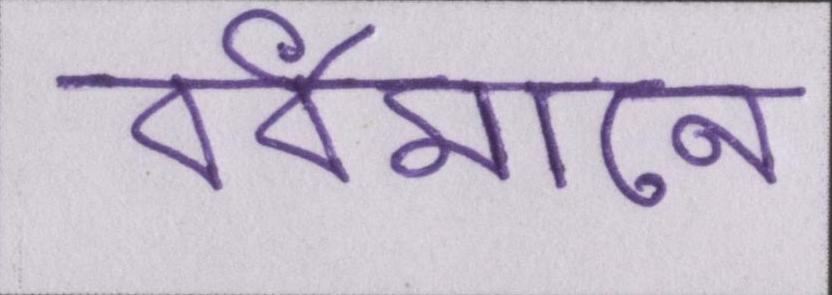 বর্ধমানে